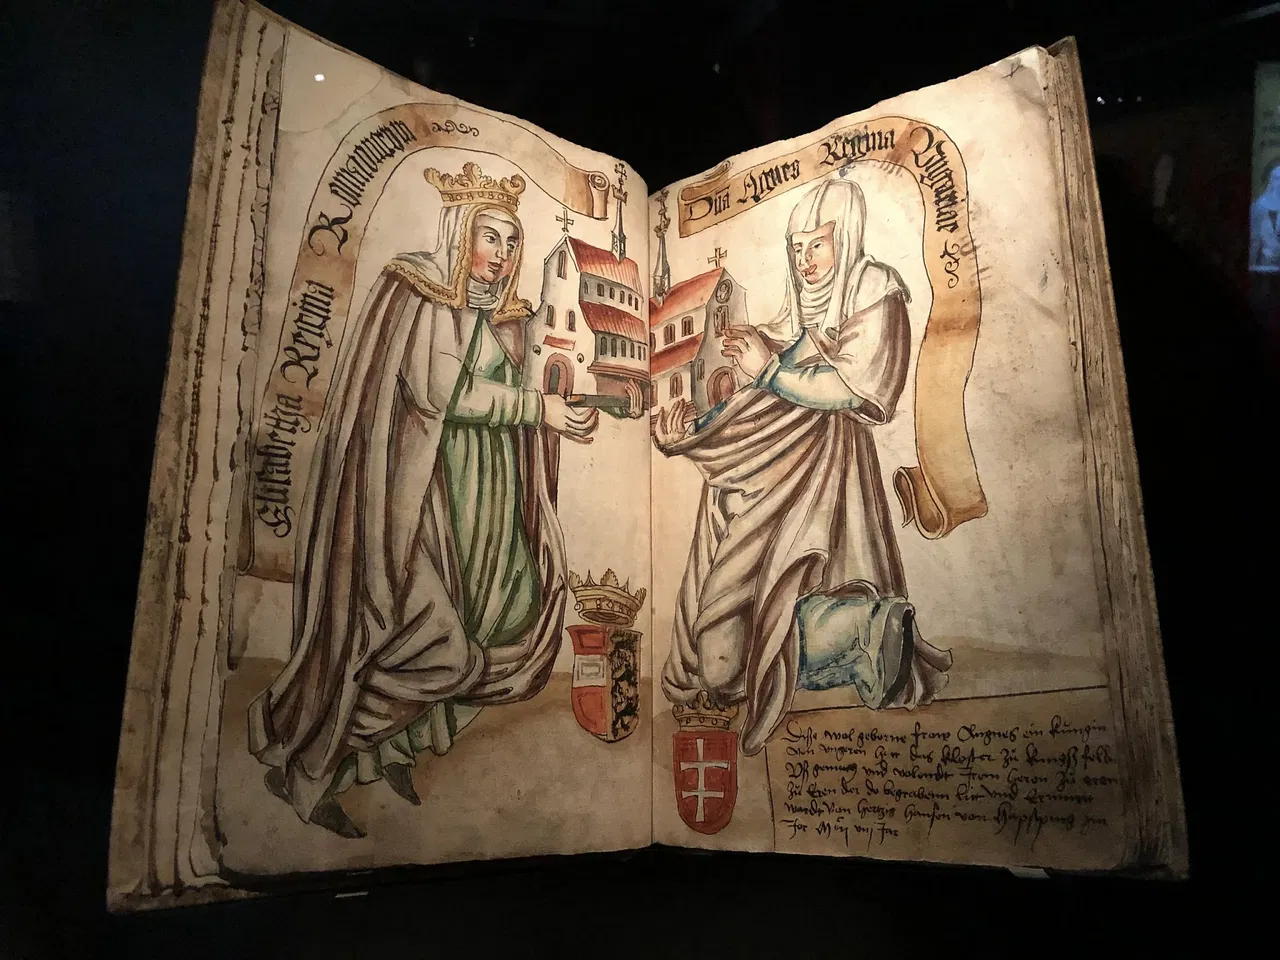 Elisabetha Regina Romanorum
Dna Agnes Regina Ungarie
Dise wol geborne frow Angnes ein kungin
von ungeren hett das kloster zu kungsfeld
und volendt irem heren zu eren
zu Eren der do begraben lit und
wardt von Hertzig Hansen von Hapspurg im
Jar